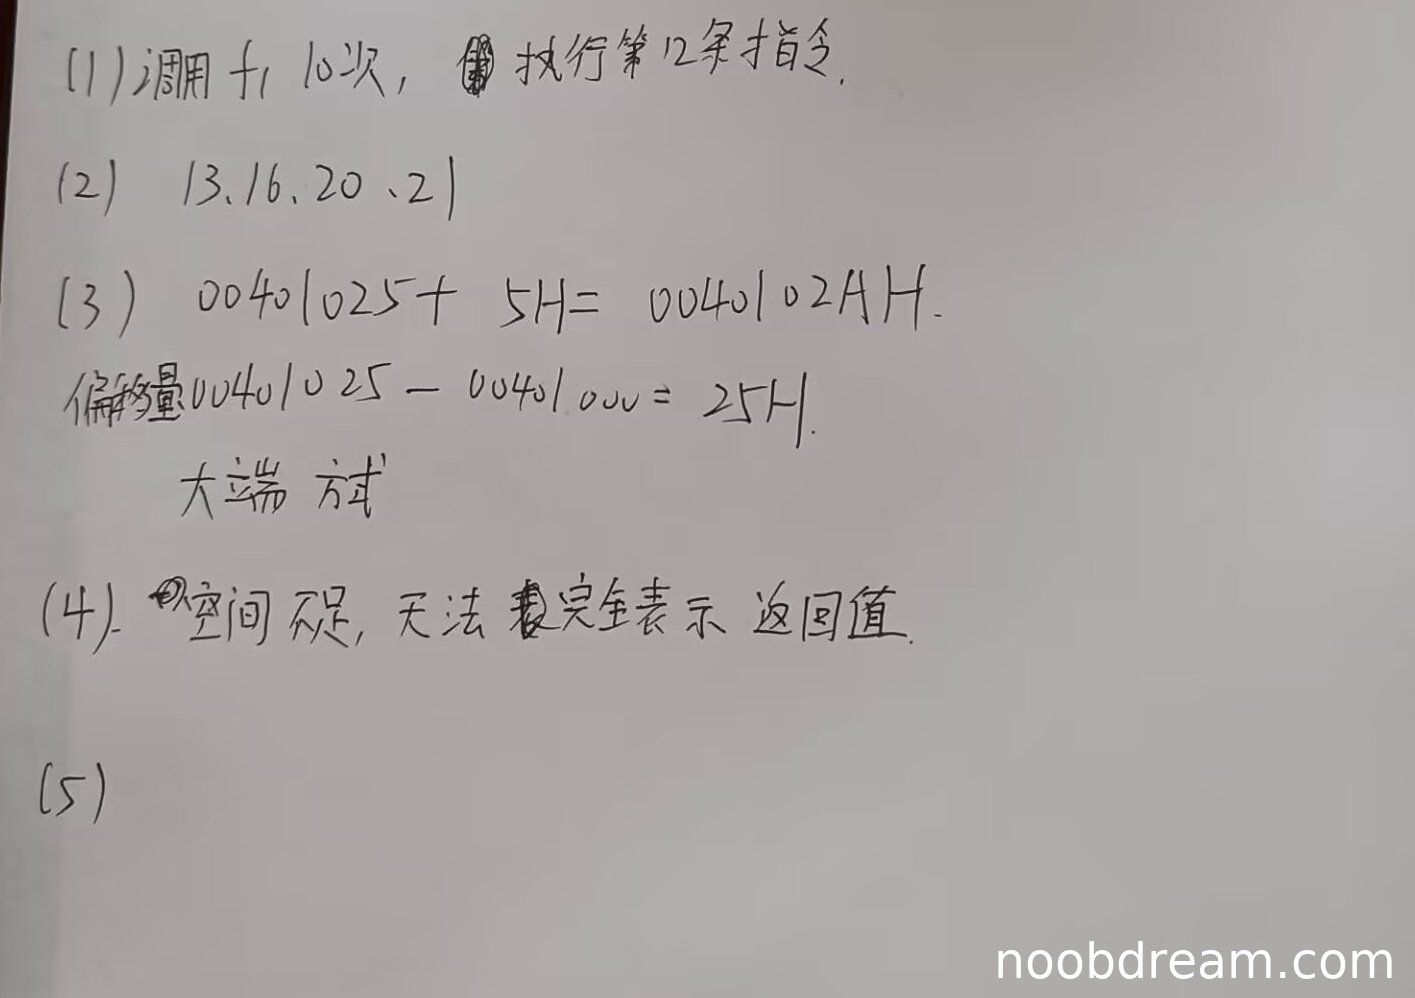 (1) 调用 f1 10次, 执行第12条指令.
(2) 13、16、20、21
(3) 00401025+ 5H= 0040102AH.
偏移量00401025 - 00401000= 25H.
大端 方式
(4). 空间不足, 无法 完全表示 返回值.
(5)
noobdream.com